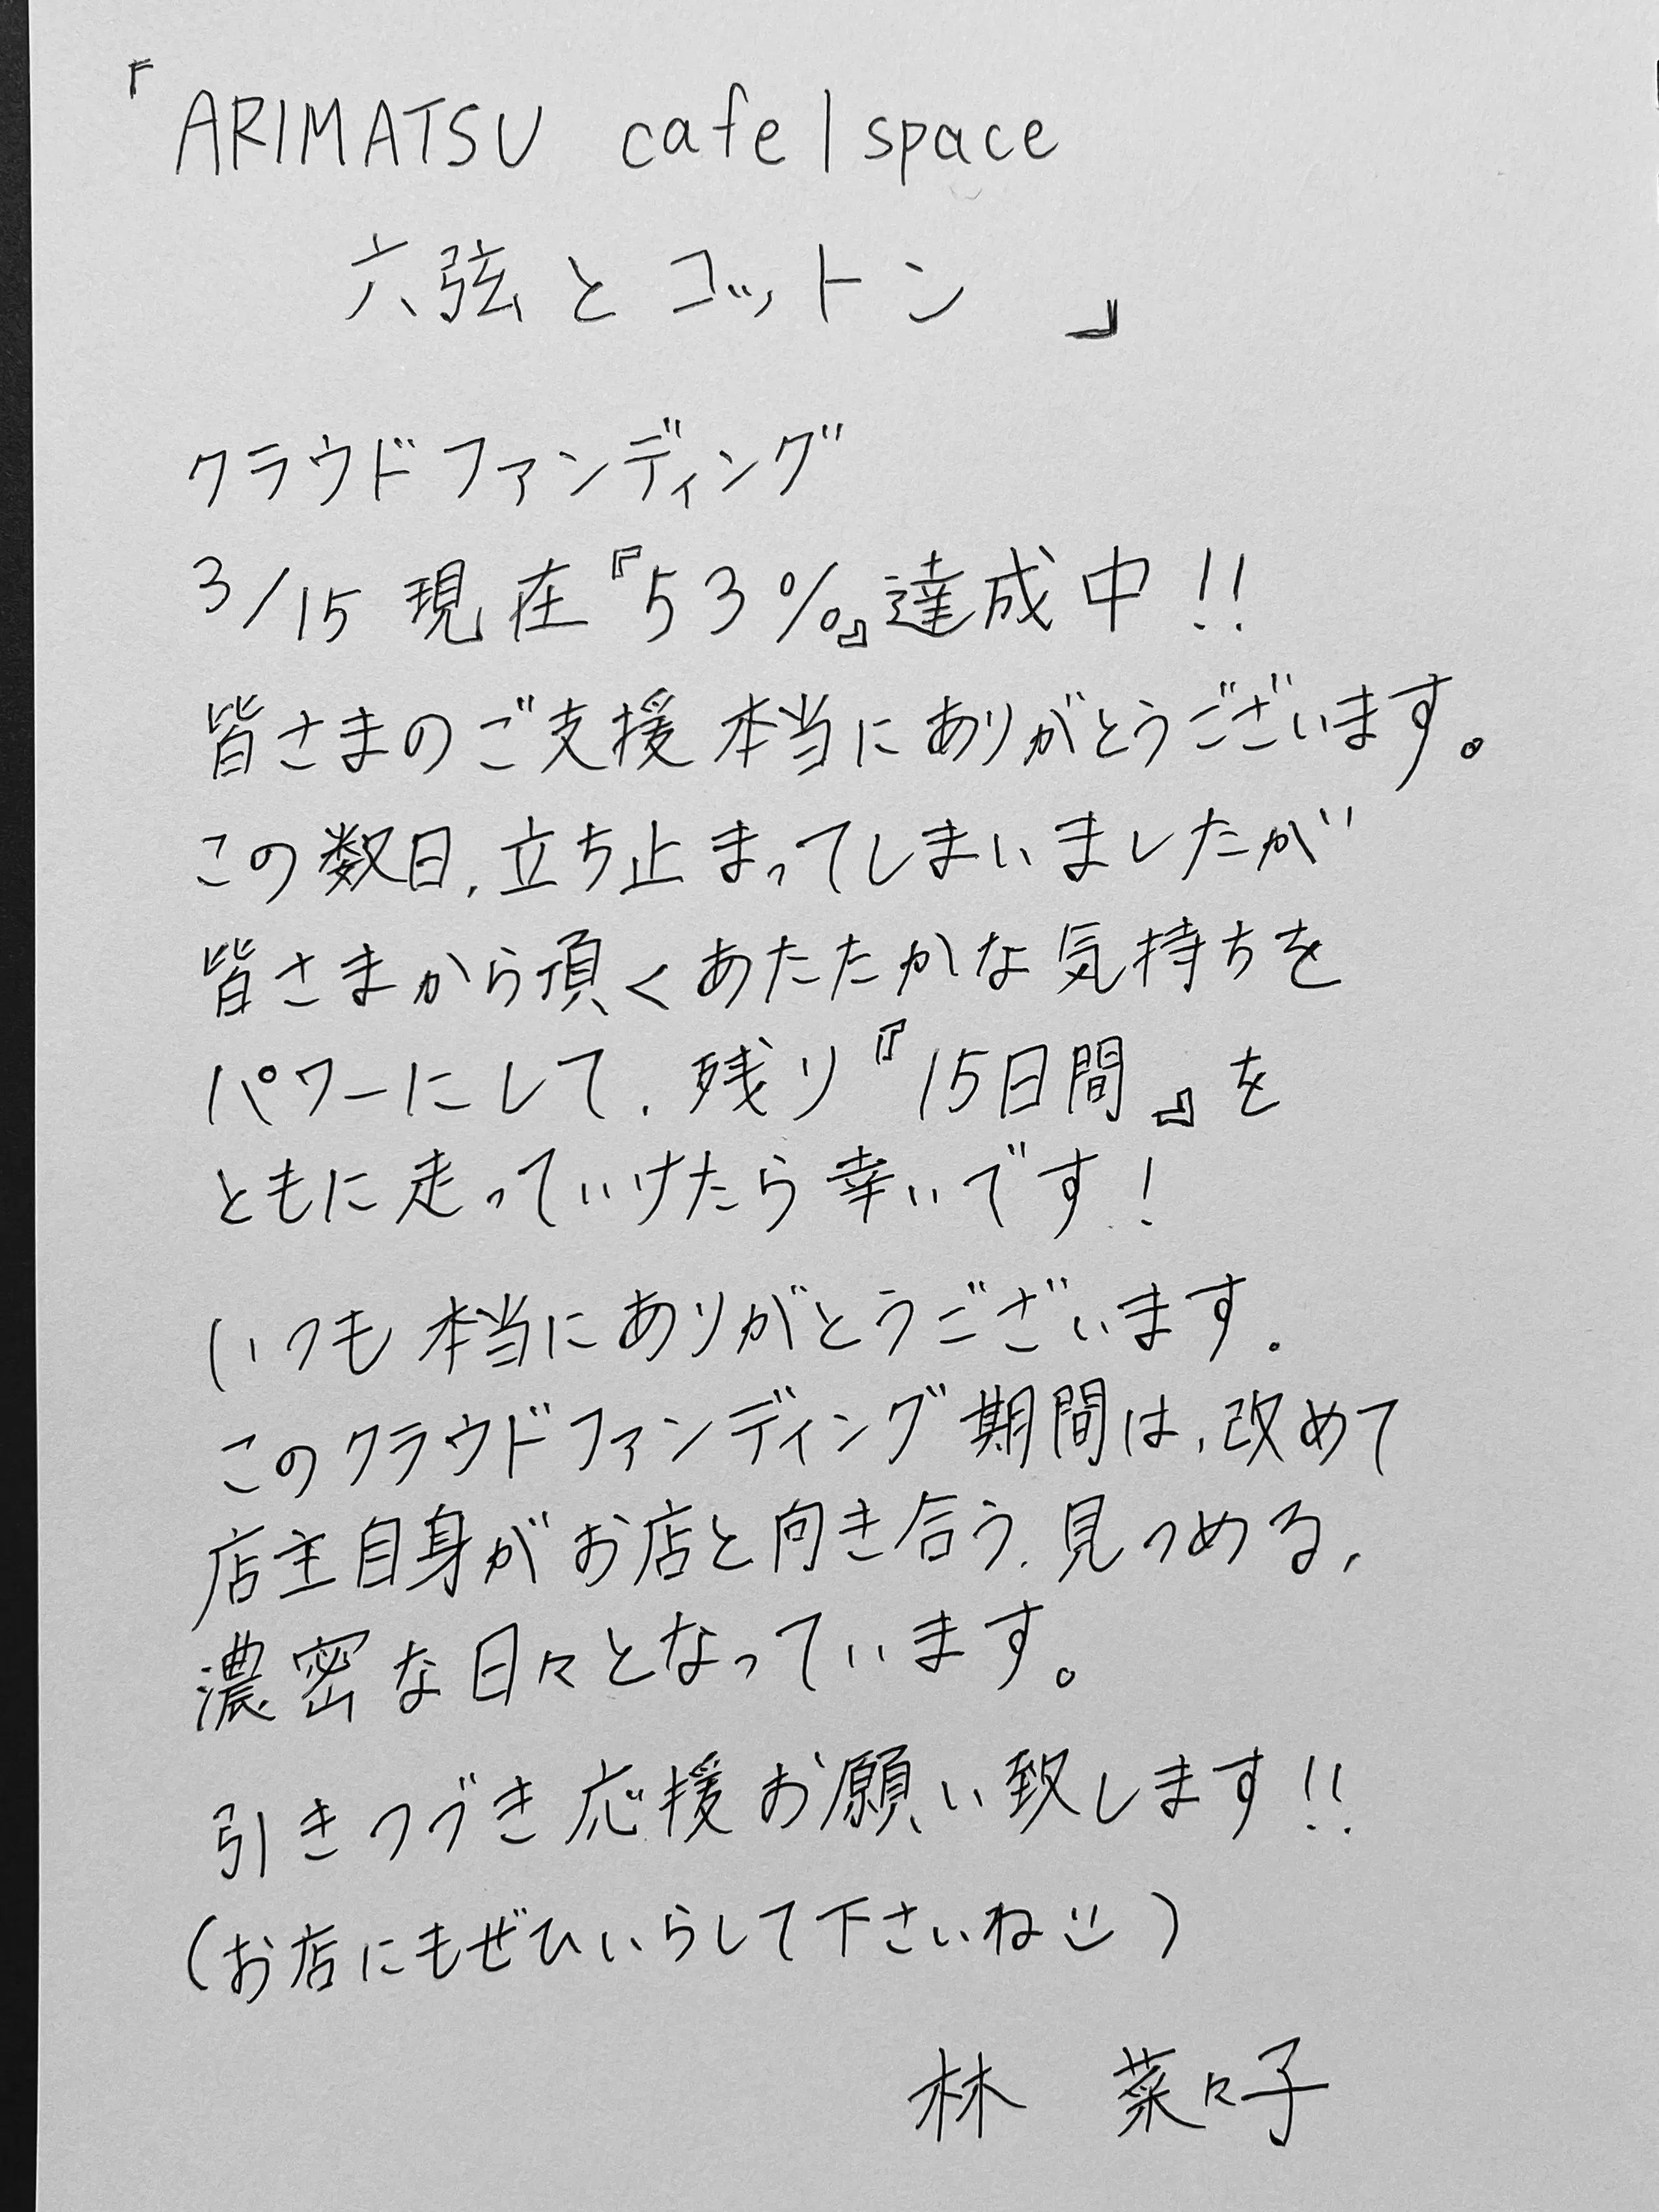 『ARIMATSU cafe | space
六弦とコットン 』
クラウドファンディング
3/15 現在『53%』達成中!!
皆さまのご支援 本当にありがとうございます。
この数日、立ち止まってしまいましたが
皆さまから頂くあたたかな気持ちを
パワーにして、残り『15日間』を
ともに走っていけたら幸いです!
いつも本当にありがとうございます。
このクラウドファンディング期間は、改めて
店主自身がお店と向き合う、見つめる、
濃密な日々となっています。
引きつづき応援お願い致します!!
(お店にもぜひいらして下さいね☺)
林 菜々子